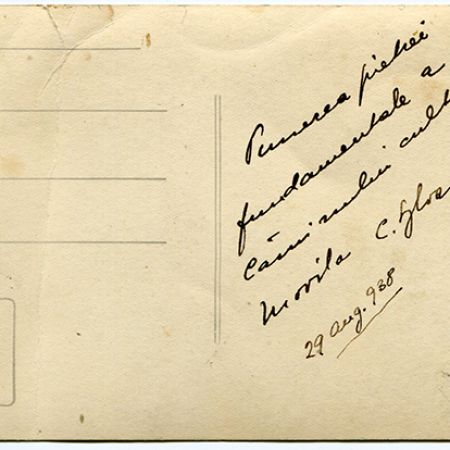 Punerea pietrei
fundamentale a
Căminului cult
Movila C.
29 Aug. 938